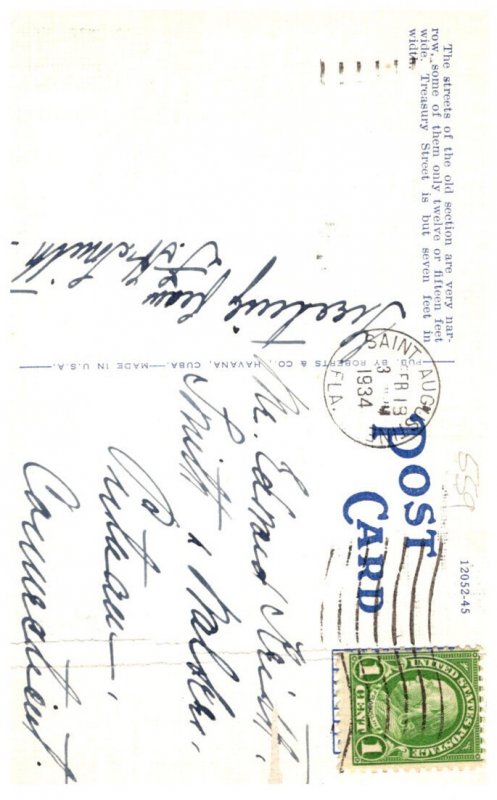 The streets of the old section are very nar-
row, some of them only twelve or fifteen feet
wide. Treasury Street is but seven feet in
width.
Greetings from
J. H. Smith.
PUB. BY ROBERTS & CO., HAVANA, CUBA. — MADE IN U.S.A.
POST
CARD
12052-45
559
SAINT AUGUS
FEB 19
3 PM
1934
FLA.
UNITED STATES POSTAGE
1 CENT 1
Mr. Edward
Smith &
Putnam,
Connecticut